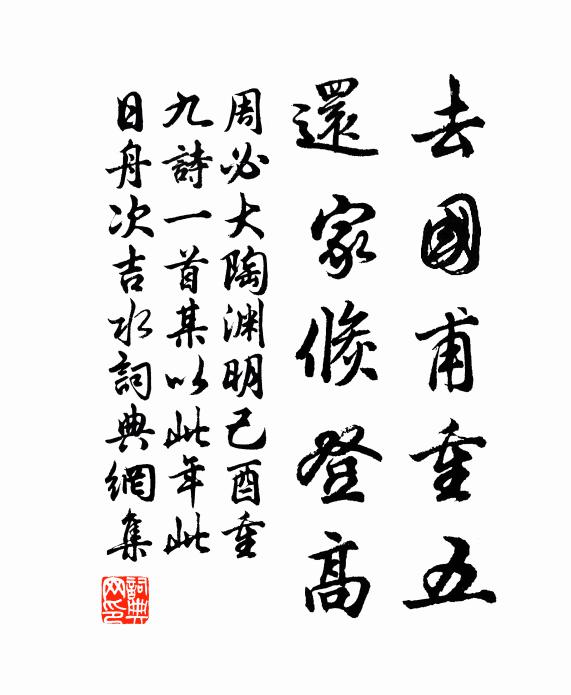 去國甫重五
還家倏登高
周必大陶淵明己酉重
九詩一首某以此年此
日舟次吉水詞典網集
詞典
网印